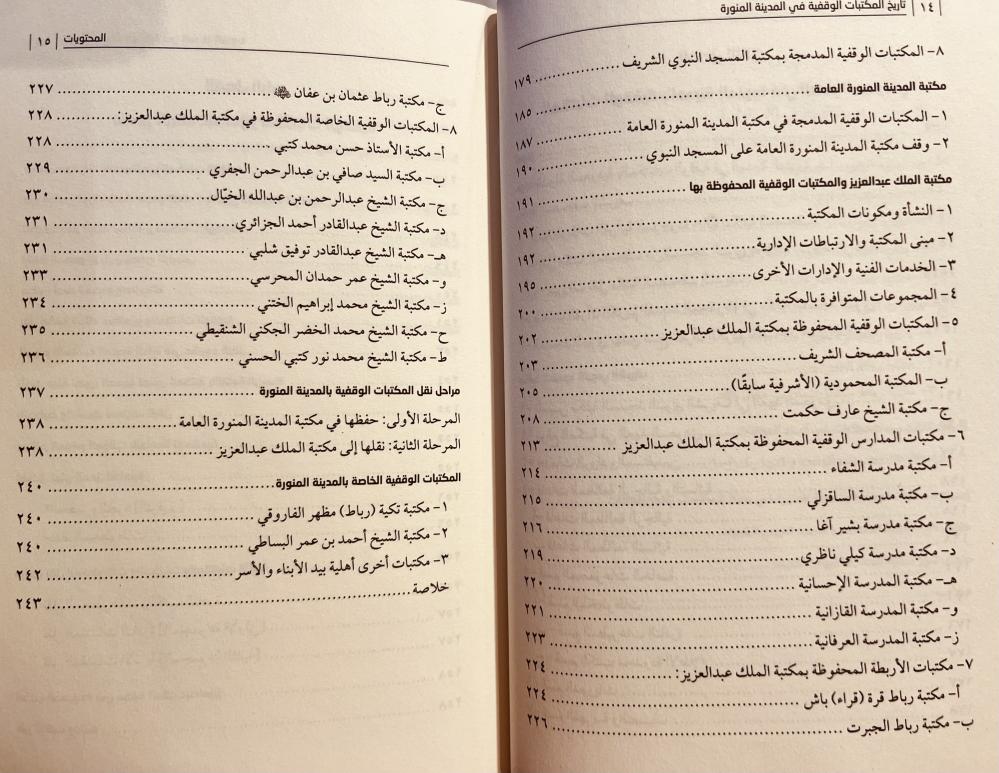 | ١٤ | تاريخ المكتبات الوقفية في المدينة المنورة
٨- المكتبات الوقفية المدمجة بمكتبة المسجد النبوي الشريف ........ ١٧٩
مكتبة المدينة المنورة العامة ........ ١٨٥
١- المكتبات الوقفية المدمجة في مكتبة المدينة المنورة العامة ........ ١٨٧
٢- وقف مكتبة المدينة المنورة العامة على المسجد النبوي ........ ١٩٠
مكتبة الملك عبدالعزيز والمكتبات الوقفية المحفوظة بها ........ ١٩١
١- النشأة ومكونات المكتبة ........ ١٩٢
٢- مبنى المكتبة والارتباطات الإدارية ........ ١٩٢
٣- الخدمات الفنية والإدارات الأخرى ........ ١٩٥
٤- المجموعات المتوافرة بالمكتبة ........ ٢٠٠
٥- المكتبات الوقفية المحفوظة بمكتبة الملك عبدالعزيز ........ ٢٠٢
أ- مكتبة المصحف الشريف ........ ٢٠٣
ب- المكتبة المحمودية (الأشرفية سابقًا) ........ ٢٠٥
ج- مكتبة الشيخ عارف حكمت ........ ٢٠٨
٦- مكتبات المدارس الوقفية المحفوظة بمكتبة الملك عبدالعزيز ........ ٢١٣
أ- مكتبة مدرسة الشفاء ........ ٢١٤
ب- مكتبة مدرسة الساقزلي ........ ٢١٥
ج- مكتبة مدرسة بشير آغا ........ ٢١٦
د- مكتبة مدرسة كيلي ناظري ........ ٢١٩
هـ- مكتبة المدرسة الإحسانية ........ ٢٢٠
و- مكتبة المدرسة القازانية ........ ٢٢١
ز- مكتبة المدرسة العرفانية ........ ٢٢٣
٧- مكتبات الأربطة المحفوظة بمكتبة الملك عبدالعزيز: ........ ٢٢٤
أ- مكتبة رباط قرة (قراء) باش ........ ٢٢٤
ب- مكتبة رباط الجبرت ........ ٢٢٦
المحتويات | ١٥ |
ج- مكتبة رباط عثمان بن عفان ﵁ ........ ٢٢٧
٨- المكتبات الوقفية الخاصة المحفوظة في مكتبة الملك عبدالعزيز: ........ ٢٢٨
أ- مكتبة الأستاذ حسن محمد كتبي ........ ٢٢٨
ب- مكتبة السيد صافي بن عبدالرحمن الجفري ........ ٢٢٩
ج- مكتبة الشيخ عبدالرحمن بن عبدالله الخيّال ........ ٢٣٠
د- مكتبة الشيخ عبدالقادر أحمد الجزائري ........ ٢٣١
هـ- مكتبة الشيخ عبدالقادر توفيق شلبي ........ ٢٣١
و- مكتبة الشيخ عمر حمدان المحرسي ........ ٢٣٣
ز- مكتبة الشيخ محمد إبراهيم الختني ........ ٢٣٤
ح- مكتبة الشيخ محمد الخضر الجكني الشنقيطي ........ ٢٣٥
ط- مكتبة الشيخ محمد نور كتبي الحسني ........ ٢٣٦
مراحل نقل المكتبات الوقفية بالمدينة المنورة ........ ٢٣٧
المرحلة الأولى: حفظها في مكتبة المدينة المنورة العامة ........ ٢٣٨
المرحلة الثانية: نقلها إلى مكتبة الملك عبدالعزيز ........ ٢٣٨
المكتبات الوقفية الخاصة بالمدينة المنورة ........ ٢٤٠
١- مكتبة تكية (رباط) مظهر الفاروقي ........ ٢٤٠
٢- مكتبة الشيخ أحمد بن عمر البساطي ........ ٢٤٠
٣- مكتبات أخرى أهلية بيد الأبناء والأسر ........ ٢٤٢
خلاصة ........ ٢٤٣